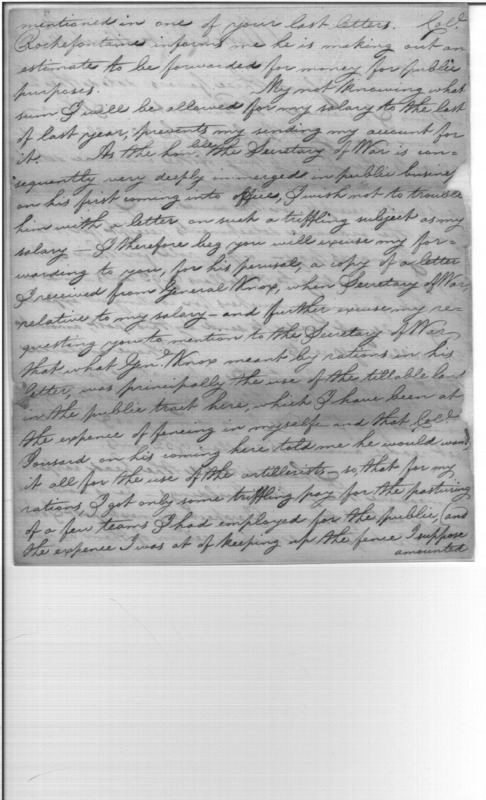 mentioned in one of your last letters. Colo.
Rochefontaine informs me he is making out an
estimate to be forwarded for money for public
purposes. My not knowing what
sum I will be allowed for my salary to the last
of last year, prevents my sending my account for
it. As the honble. the Secretary of War is con=
sequently very deeply immerged in public business
on his first coming into office, I wish not to trouble
him with a letter on such a triffling subject as my
salary — I therefore beg you will excuse my for=
warding to you, for his perusal, a copy of a letter
I received from General Knox, when Secretary of War,
relative to my salary — and further excuse my re=
questing you to mention to the Secretary of War
that what Genl. Knox meant by rations in his
letter, was principally the use of the tillable land
in the public tract here, which I have been at
the expence of fencing in myself — and that Colo.
on his coming here told me he would want
it all for the use of the artillerists — so that for my
rations, I got only some triffling pay for the pasturing
of a few teams I had employed for the public, and
the expence I was at of keeping up the fence I suppose
amounted